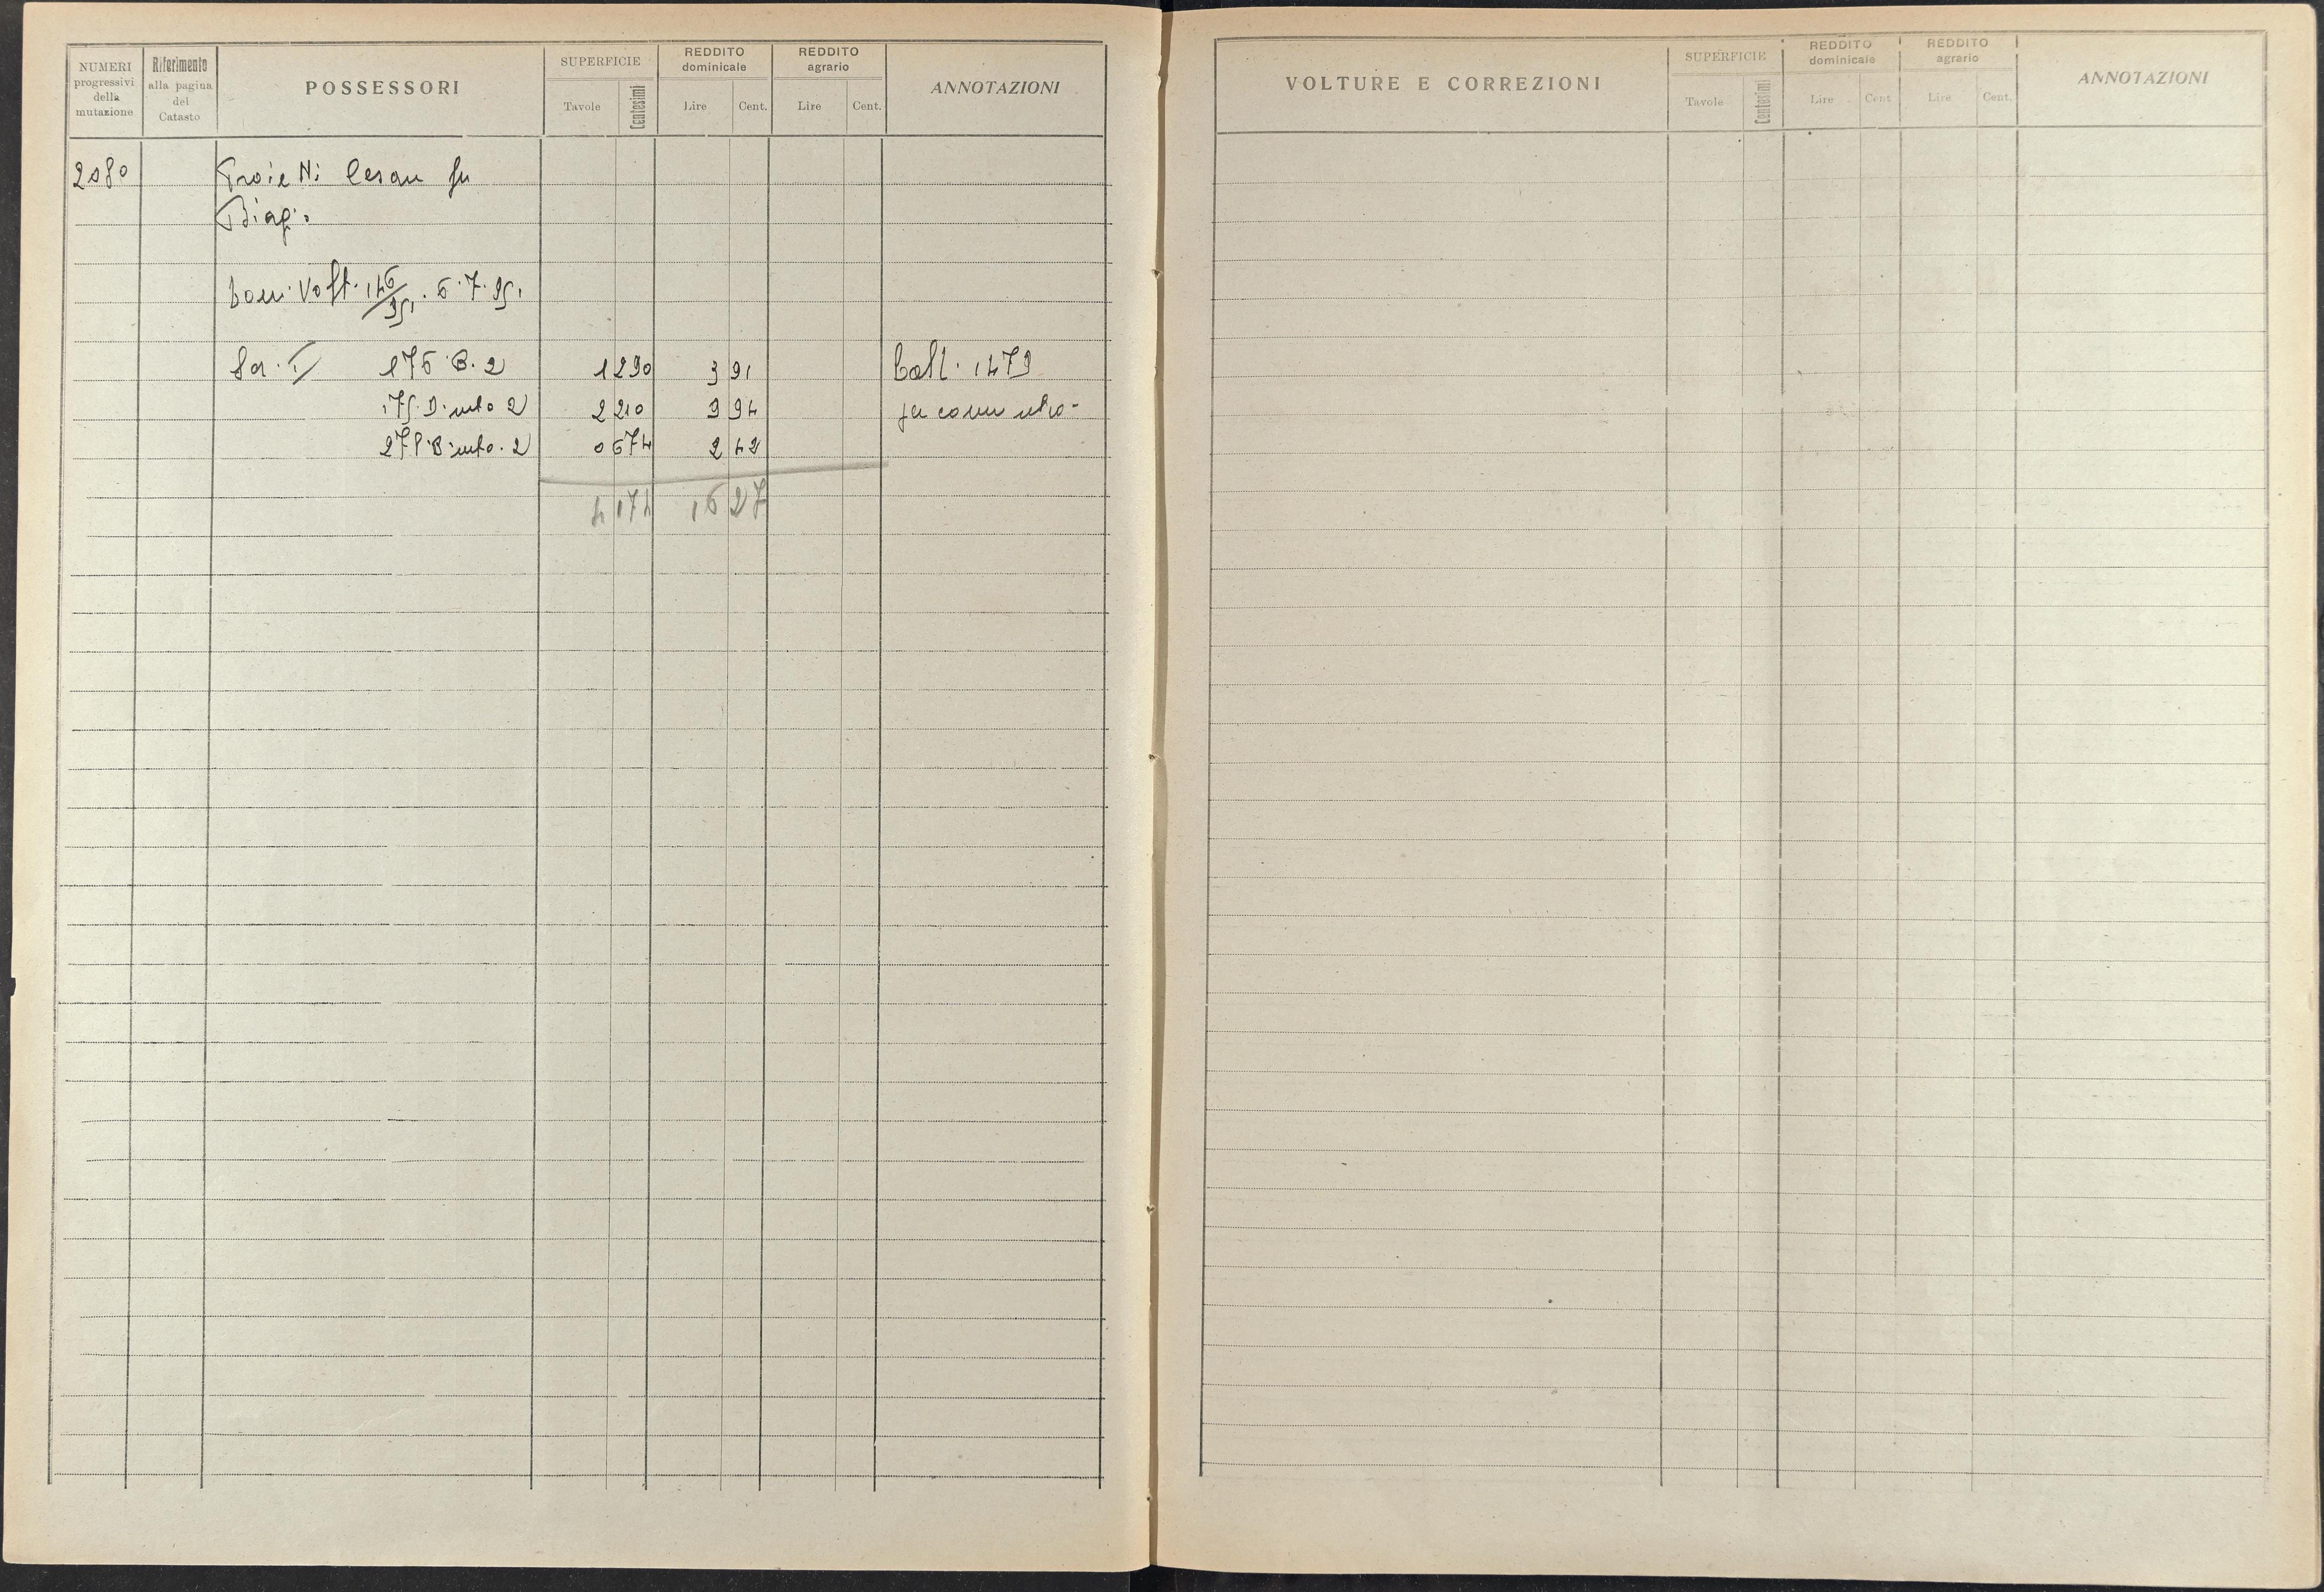 NUMERI
progressivi
della
mutazione
Riferimento
alla pagina
del
Catasto
POSSESSORI
SUPERFICIE
Tavole
Centesimi
REDDITO
dominicale
Lire
Cent.
REDDITO
agrario
Lire
Cent.
ANNOTAZIONI
2080 Proietti Cesare fu
Biagio
Volt. 146/951. 6.7.951
Sez. I 176 B. 2 1 290 3 91 Coll. 1479
175. D. 2 2 210 9 94
278 B 2 0 674 2 42
4 174 16 27
VOLTURE E CORREZIONI
SUPERFICIE
Tavole
Centesimi
REDDITO
dominicale
Lire
Cent
REDDITO
agrario
Lire
Cent.
ANNOTAZIONI